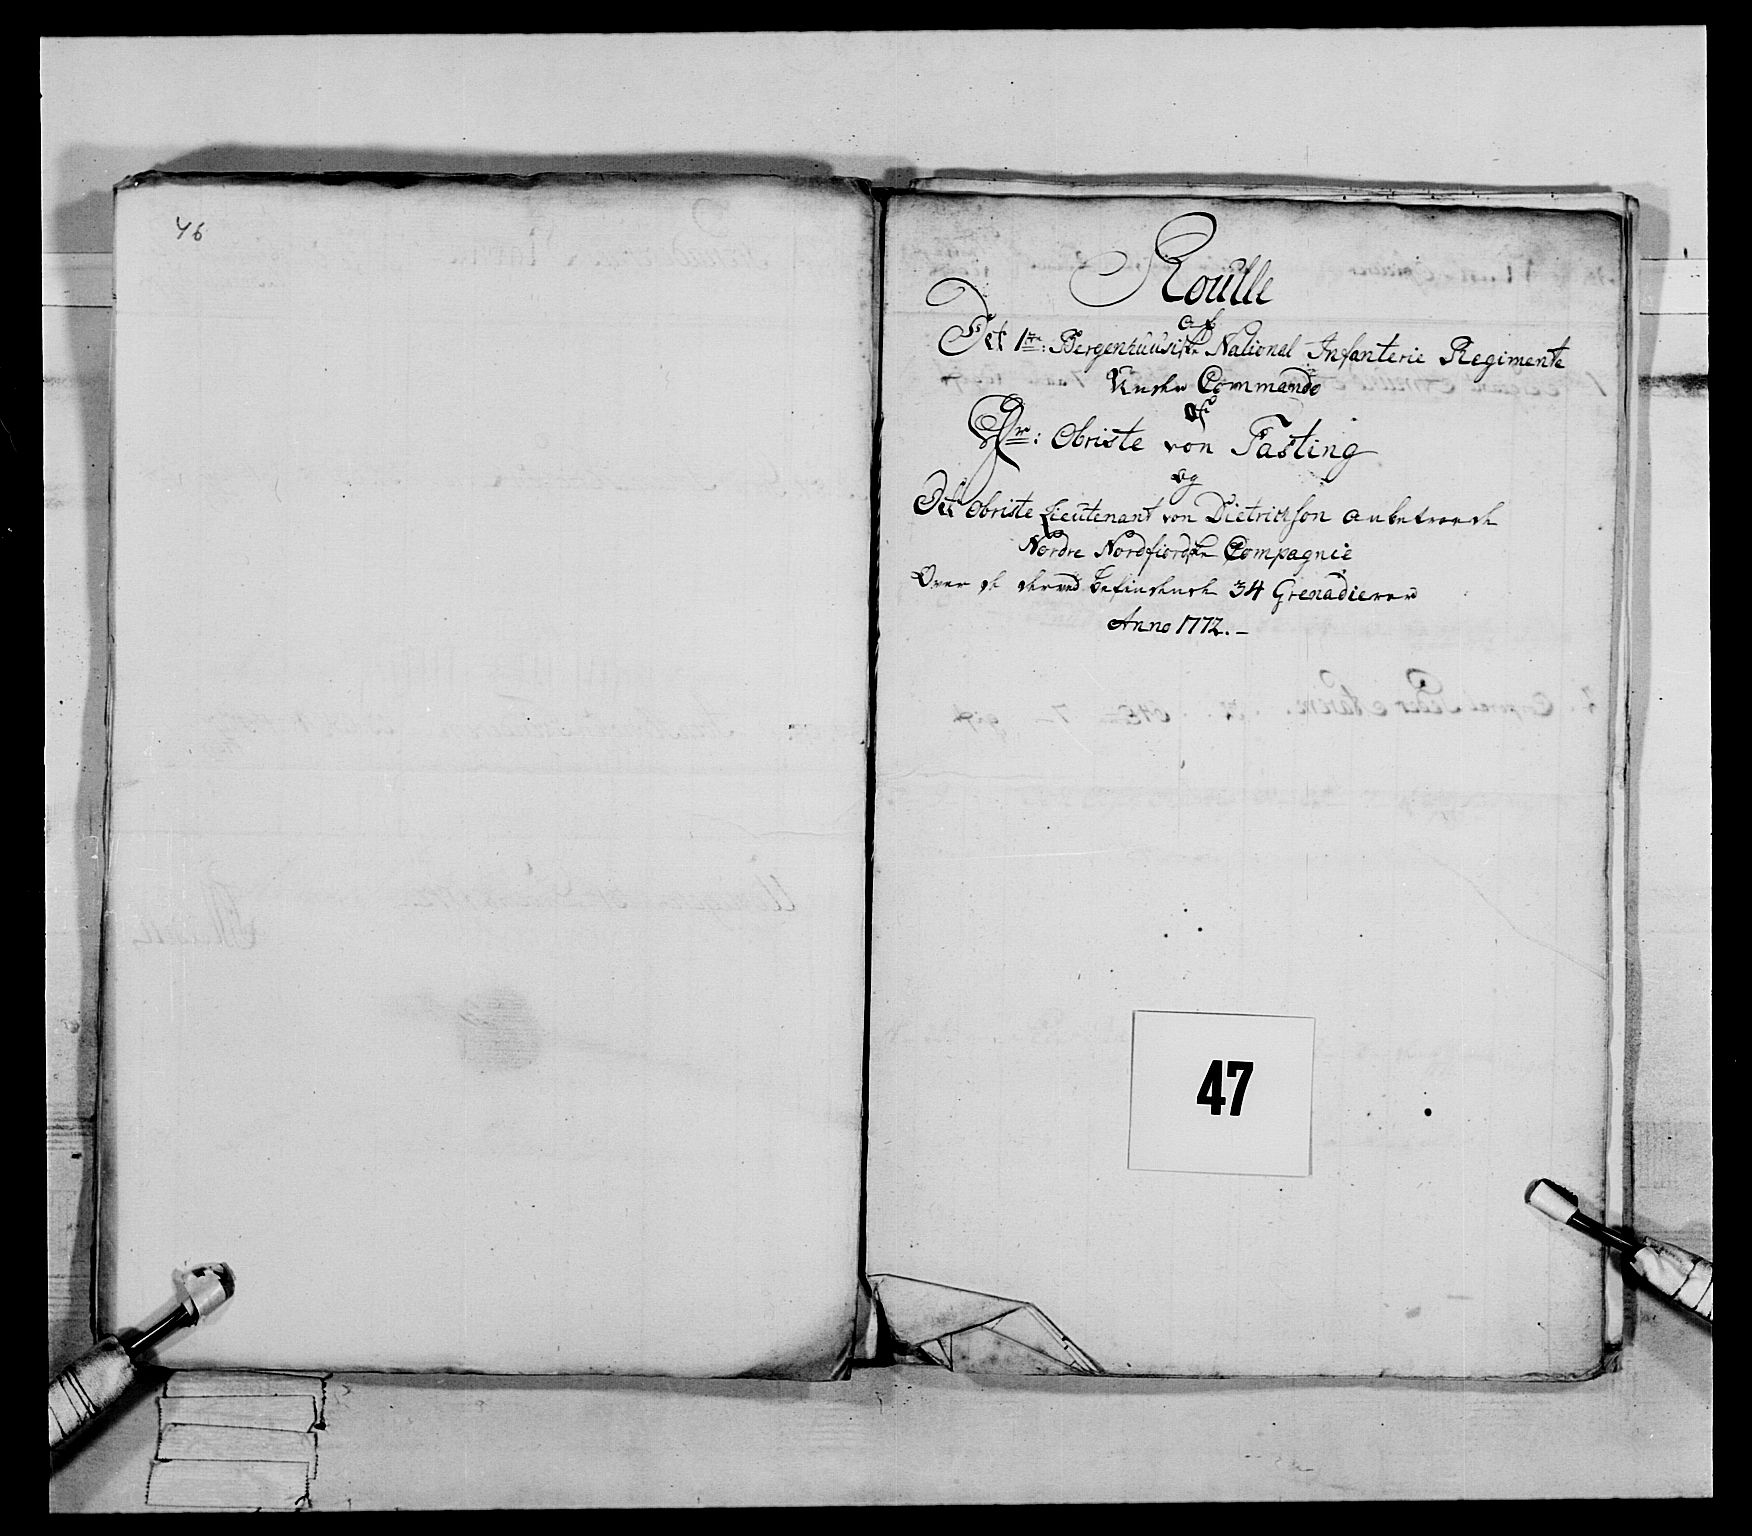 46
Roulle
af
Det 1te: Bergenhuusiske National Infanterie Regimente
Under Commando
af
Hr: Obriste von Fasting
og
Det Obriste Lieutenant von Dietrichson anbetroede
Nordre Nordfiordske Compagnie
Over de derved befindende 34 Grenadierer
Anno 1772.-
47